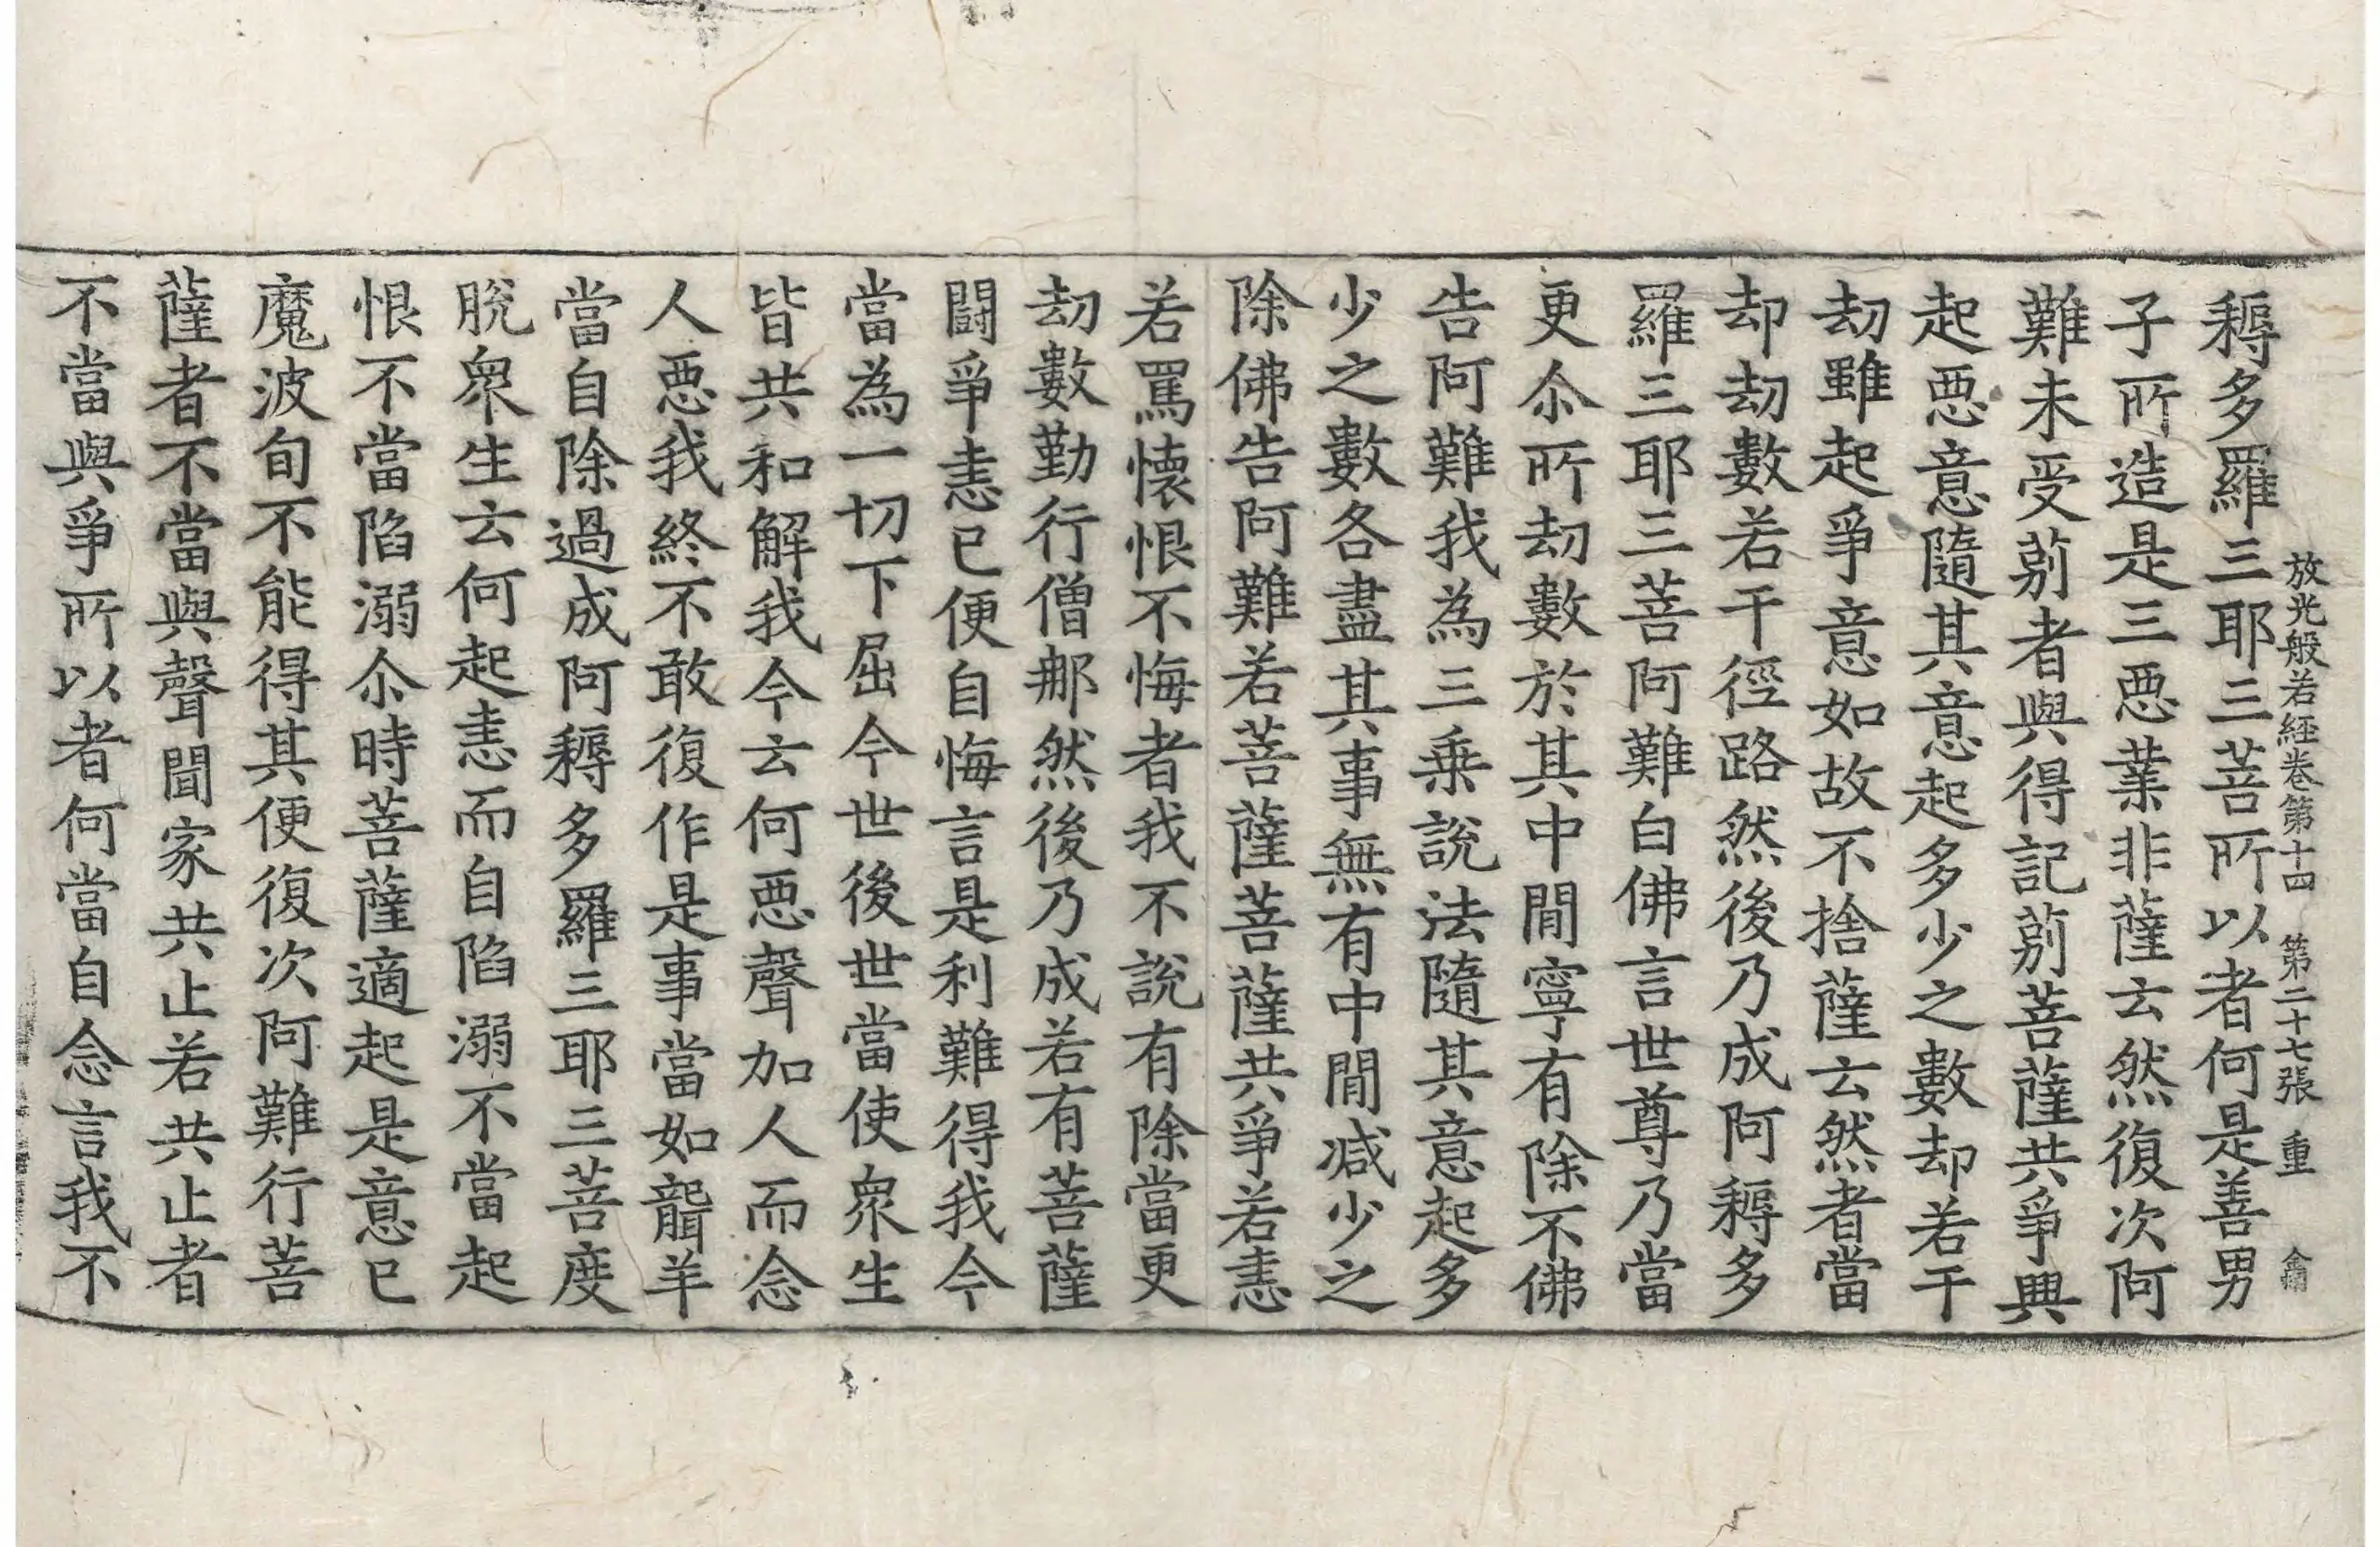 放光般若経卷第十四 第二十七張 重
耨多羅三耶三菩所以者何是善男
子所造是三惡業非薩云然復次阿
難未受莂者與得記莂菩薩共爭興
起惡意隨其意起多少之數却若干
劫雖起爭意如故不捨薩云然者當
却劫數若干徑路然後乃成阿耨多
羅三耶三菩阿難白佛言世尊乃當
更尒所劫數於其中閒寧有除不佛
告阿難我為三乗說法隨其意起多
少之數各盡其事無有中閒減少之
除佛告阿難若菩薩菩薩共爭若恚
若罵懷恨不悔者我不說有除當更
劫數勤行僧那然後乃成若有菩薩
闘爭恚已便自悔言是利難得我今
當為一切下屈今世後世當使衆生
皆共和解我今云何惡聲加人而念
人惡我終不敢復作是事當如聾羊
當自除過成阿耨多羅三耶三菩度
脫衆生云何起恚而自陷溺不當起
恨不當陷溺尒時菩薩適起是意已
魔波旬不能得其便復次阿難行菩
薩者不當與聲聞家共止若共止者
不當與爭所以者何當自念言我不